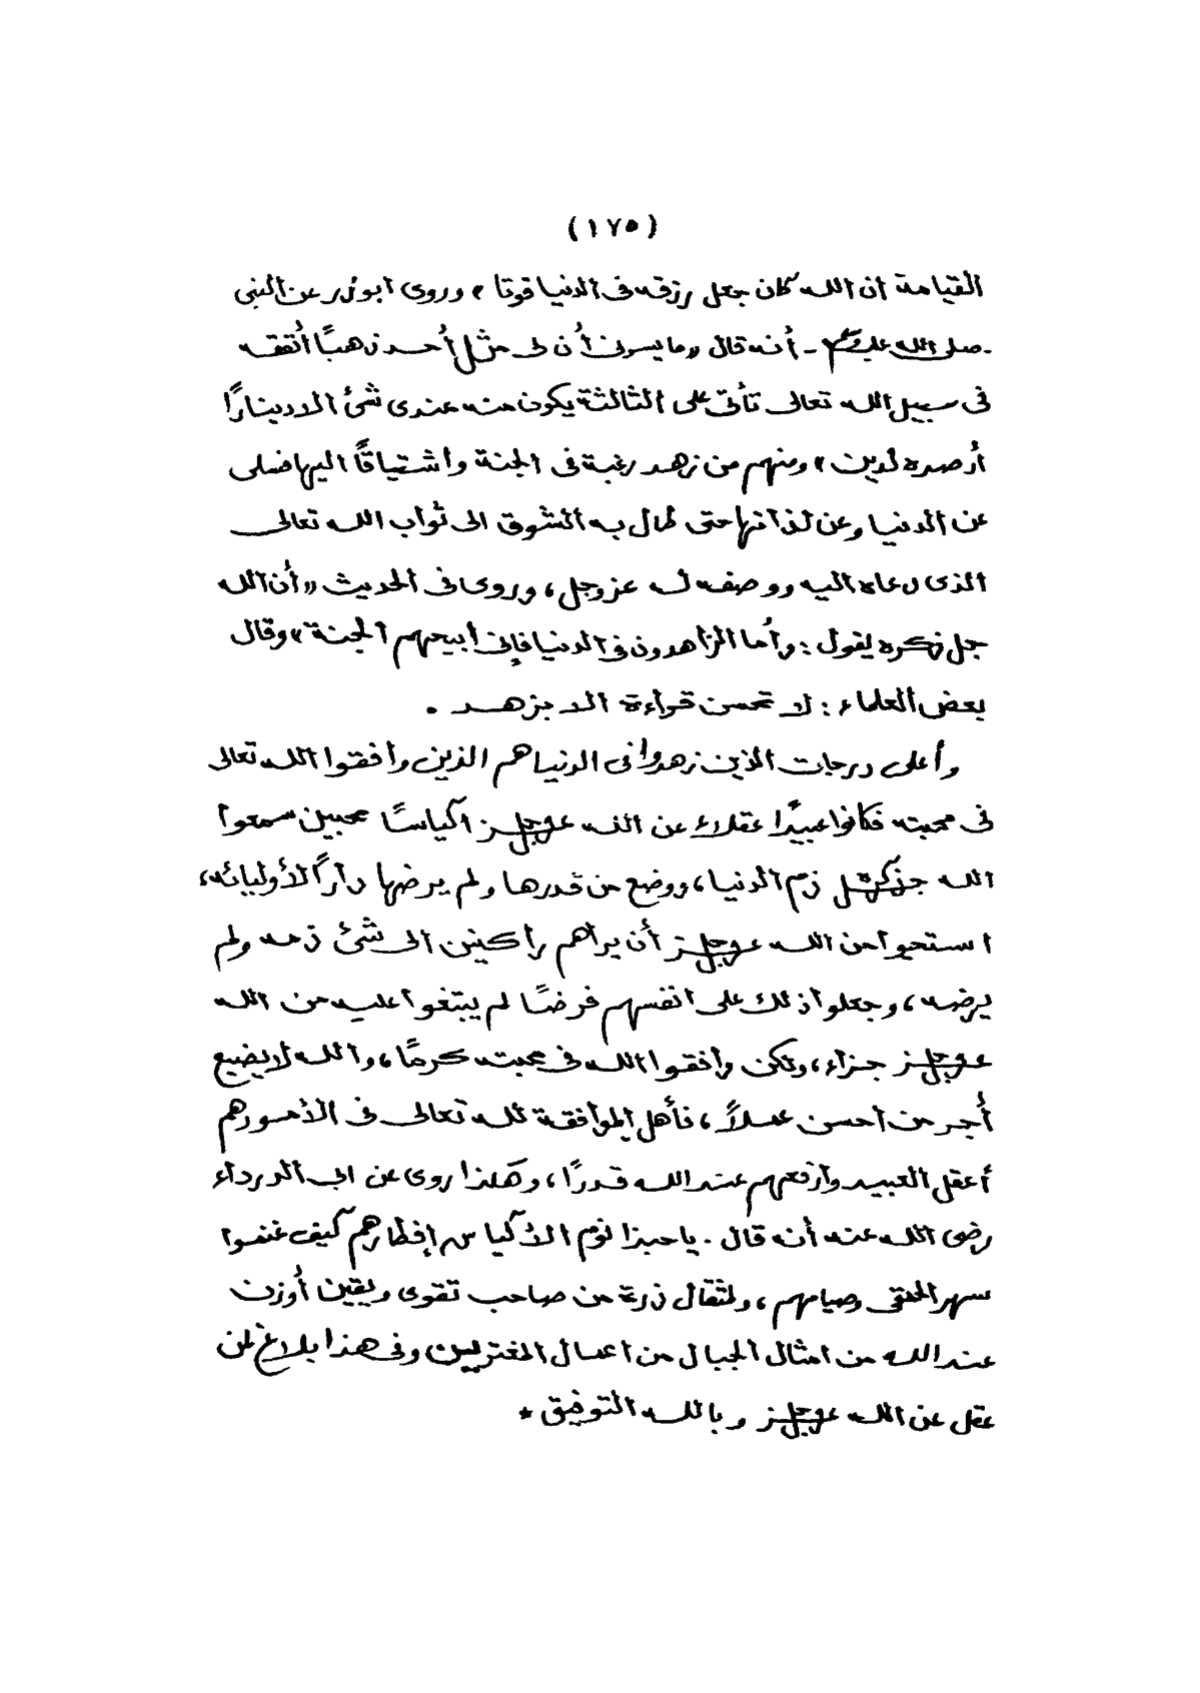 (١٧٥)
القيامة ان الله كان جعل رزقه فى الدنيا قوتا » وروى ابوذر عن النبى
- صلى الله عليه وسلم - أنه قال « ما يسرنى أن لى مثل أُحد ذهبًا أنفقه
فى سبيل الله تعالى تأتى على الثالثة يكون منه عندى شئ الا دينارًا
أرصده لدين » ومنهم من زهد رغبة فى الجنة واشتياقًا اليها فسلى
عن الدنيا وعن لذاتها حتى طال به الشوق الى ثواب الله تعالى
الذى دعاه اليه ووصفه له عز وجل ، وروى فى الحديث « أن الله
جل ذكره يقول : وأما الزاهدون فى الدنيا فإنى أبيحهم الجنة » وقال
بعض العلماء : لا تحسن قراءة الا بزهد .
وأعلى درجات الذين زهدوا فى الدنيا هم الذين وافقوا الله تعالى
فى محبته فكانوا عبيدًا عقلاء عن الله عز وجل أكياسًا محبين سمعوا
الله جل ذكره ذم الدنيا ، ووضع من قدرها ولم يرضها دارًا لأوليائه ،
استحيوا من الله عز وجل أن يراهم راكنين الى شئ ذمه ولم
يرضه ، وجعلوا ذلك على انفسهم فرضًا لم يبتغوا عليه من الله
عز وجل جزاء ، ولكن وافقوا الله فى محبته كرمًا ، والله لا يضيع
أُجر من احسن عملاً ، فأهل الموافقة لله تعالى فى الأمور هم
أعقل العبيد وارفعهم عند الله قدرًا ، وهكذا روى عن ابى الدرداء
رضى الله عنه أنه قال . يا حبذا نوم الأكياس وإفطارهم كيف غنموا
سهر الحمقى وصيامهم ، ولمثقال ذرة من صاحب تقوى ويقين أوزن
عند الله من امثال الجبال من اعمال المغترين وفى هذا بلاغ لمن
عقل عن الله عز وجل وبالله التوفيق *